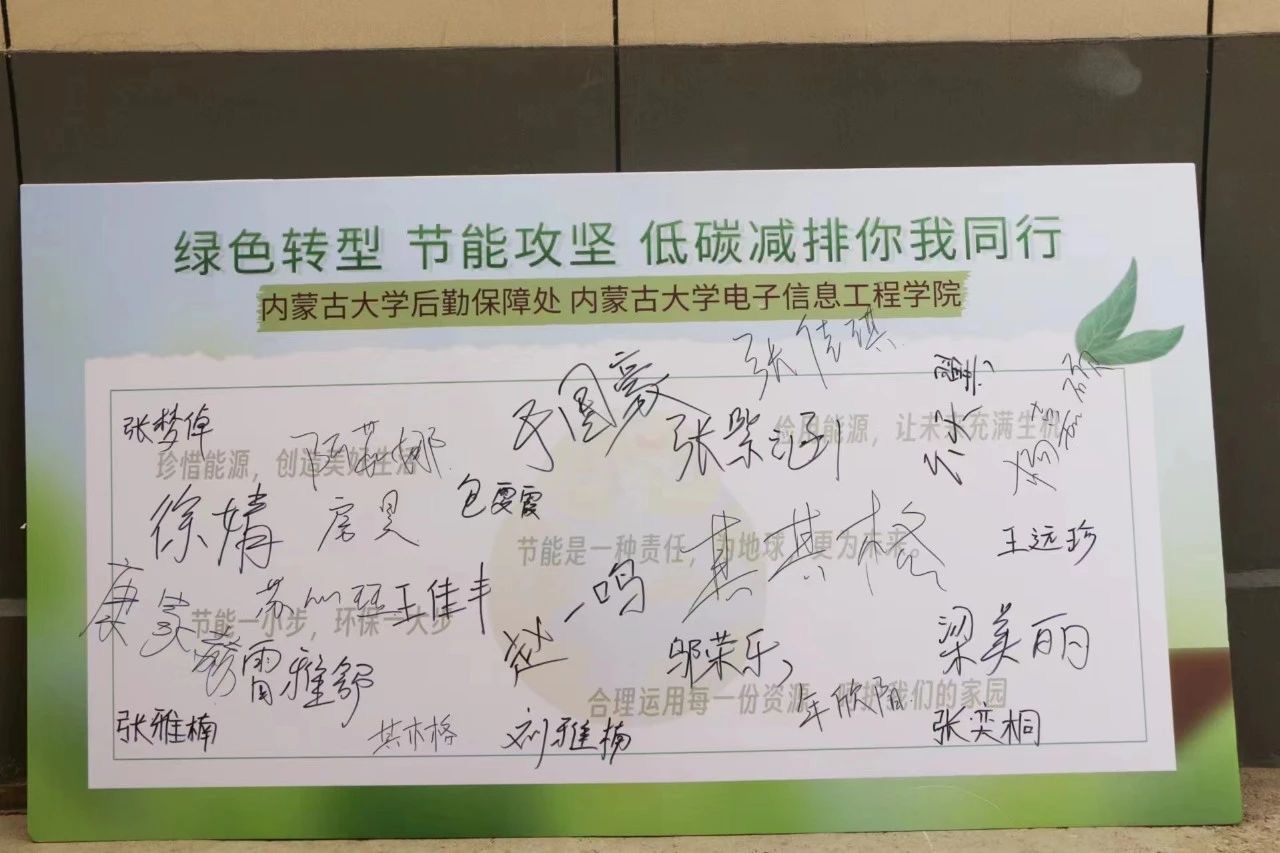 绿色转型 节能攻坚 低碳减排你我同行
内蒙古大学后勤保障处 内蒙古大学电子信息工程学院
张佳琪
张梦倬
珍惜能源，创造美好生活
图豪
张紫涵
俭用能源，让未来充满生机
徐婧
房昊
包雯霞
节能是一种责任，为地球，更为未来。
其其格
王远珍
康家
节能一小步，环保一大步
王佳丰
赵一鸣
雅舒
邬荣乐
梁美丽
合理运用每一份资源，呵护我们的家园
欣阳
张雅楠
其木格
刘雅楠
张奕桐